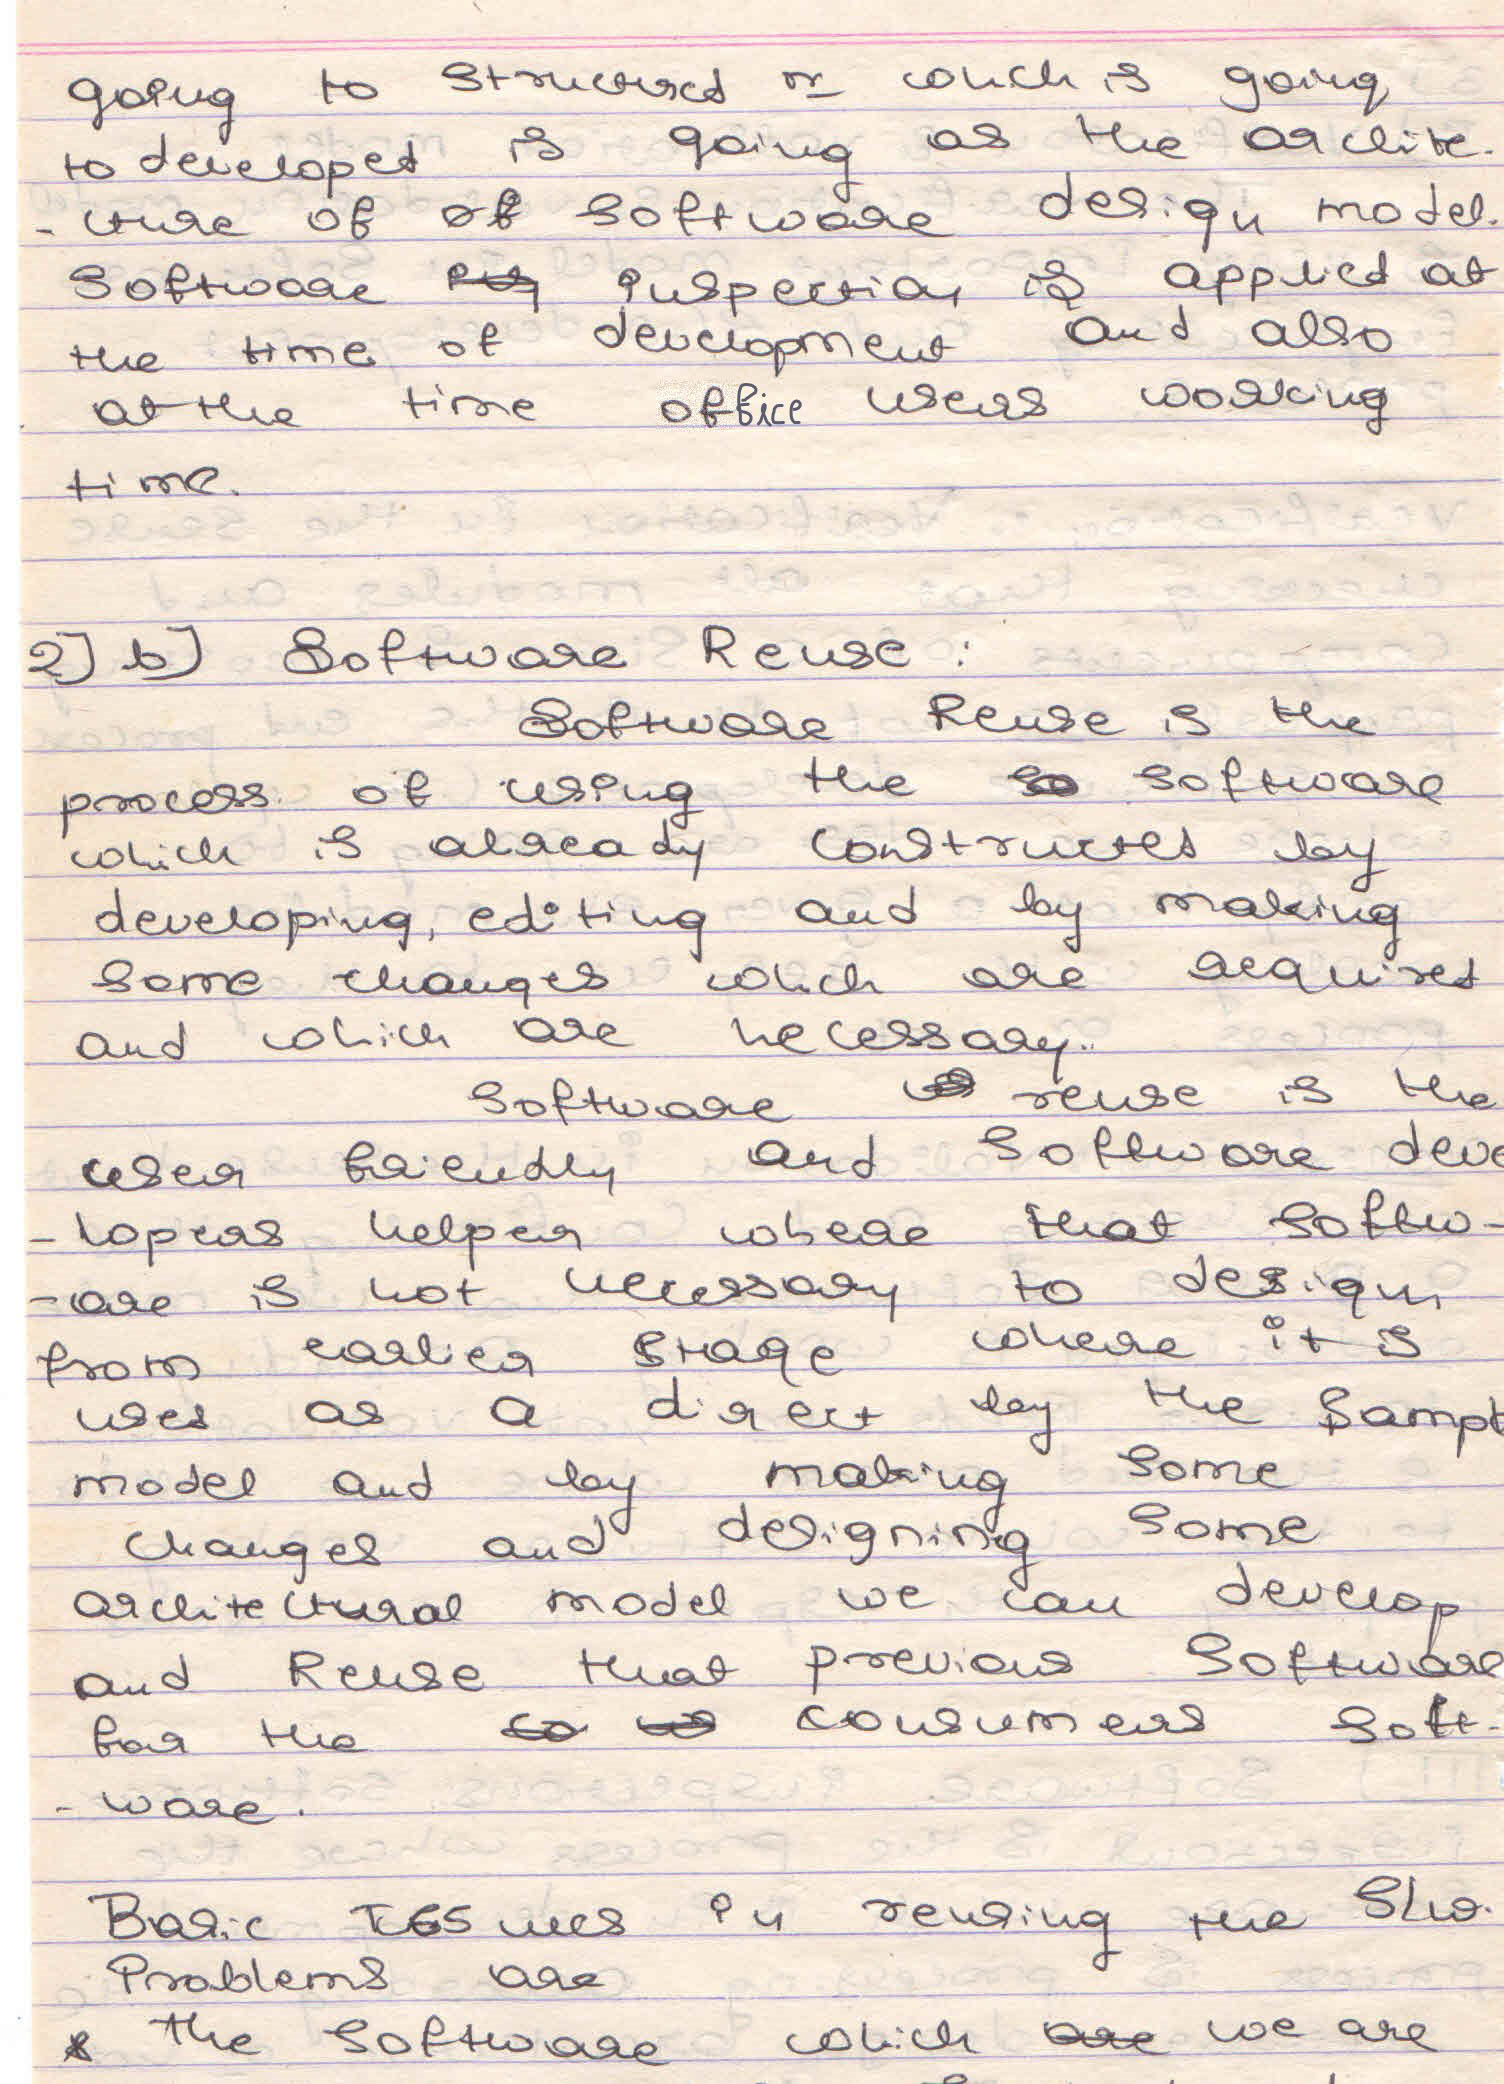 going to structured or which is going
to developed is going as the archite-
- cture of of software design model.
Software inspection is applied at
the time of development and also
at the time office users working
time.
2] b] Software Reuse :
Software Reuse is the
process of using the so software
which is already constructed by
developing, editing and by making
some changes which are required
and which are necessary..
Software reuse is the
user friendly and software deve
- lopers helper where that softw-
- are is not necessary to design
from earlier stage where it is
used as a direct by the sampl
model and by making some
changes and designing some
architectural model we can develop
and Reuse that previous software
for the consumers soft-
- ware.
Basic Issues in reusing the S/w.
Problems are
* the software which are we are